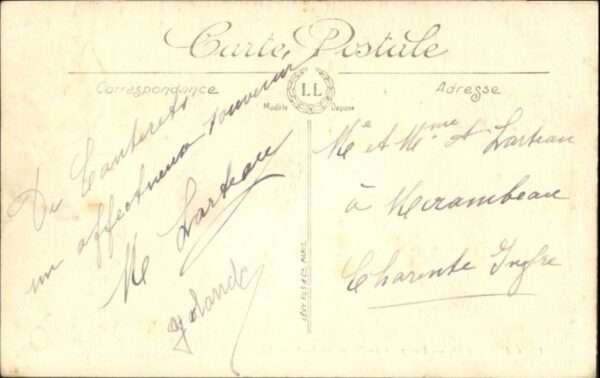 Carte Postale
Correspondance
LL
Adresse
Modèle Déposé
De Cauterets
un affectueux souvenir
M Larteau
Yolande
Mr et Mme A Larteau
à Mirambeau
Charente Infre
LÉVY FILS & Cie, PARIS